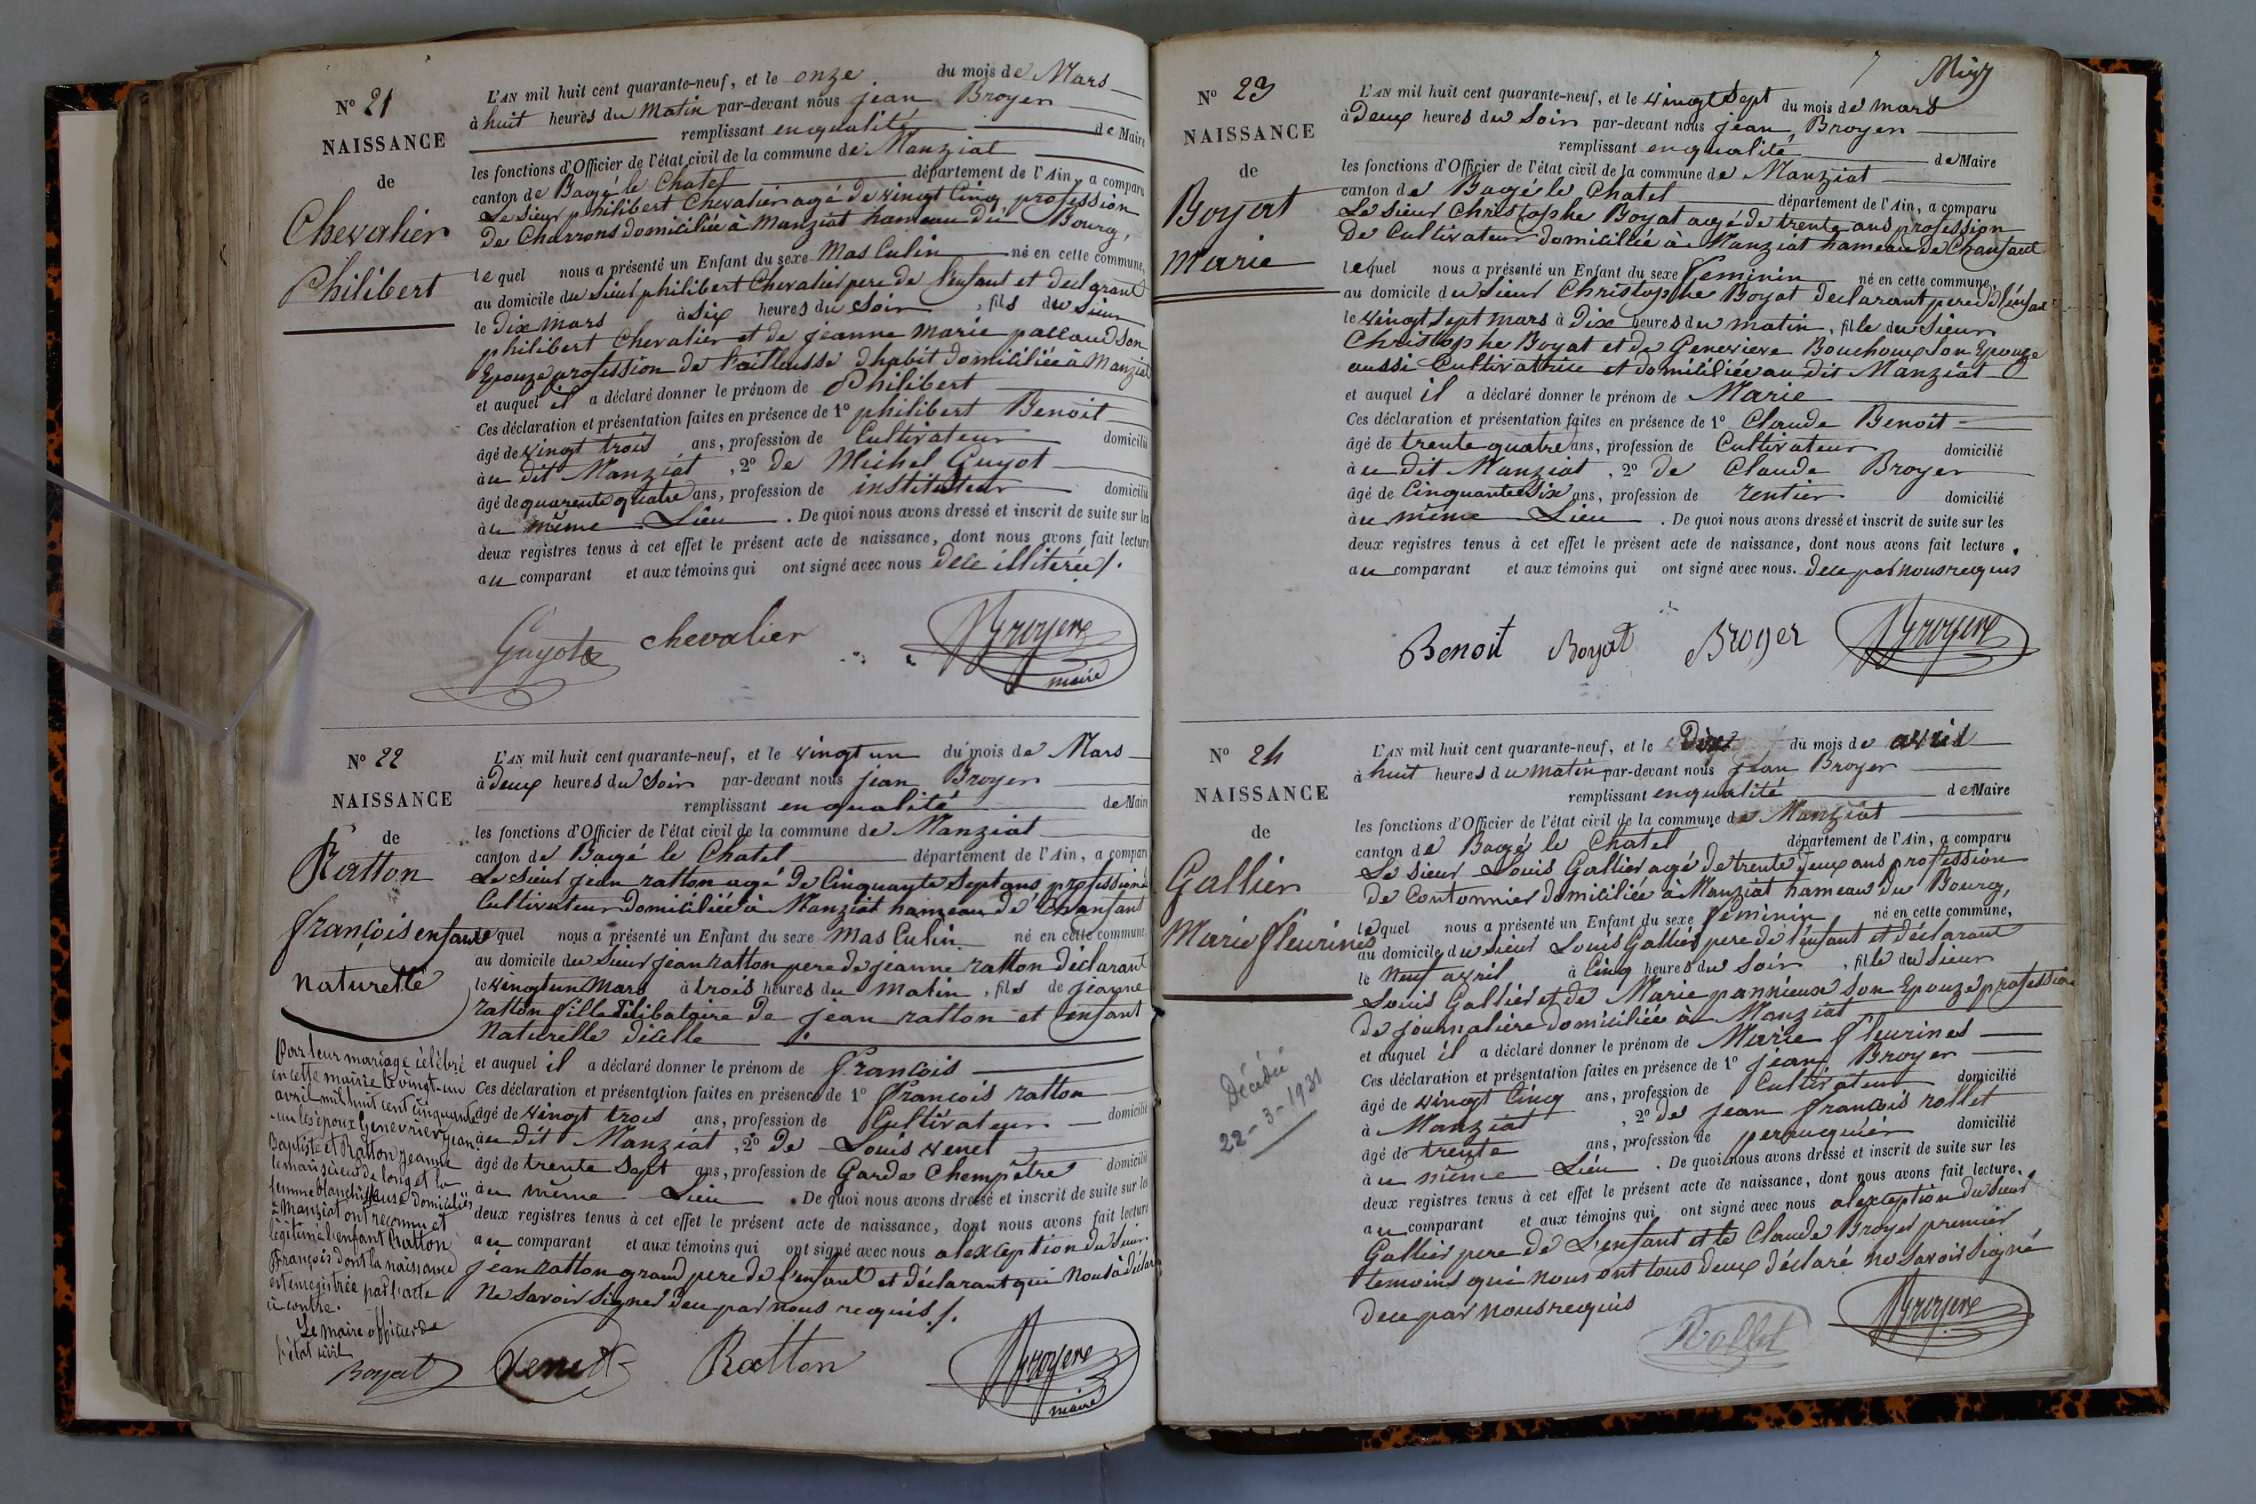 N° 21
NAISSANCE
de
Chevalier
Philibert
L'AN mil huit cent quarante-neuf, et le onze du mois de Mars
à huit heures du Matin par-devant nous jean Broyer
remplissant en qualité de Maire
les fonctions d'Officier de l'état civil de la commune de Manziat
canton de Bagé le Chatel département de l'Ain, a comparu
Le sieur philibert Chevalier agé de vingt Cinq profession
De Charrons domiciliée à Manziat hameau du Bourg,
lequel nous a présenté un Enfant du sexe Mas Culin né en cette commune,
au domicile du sieur philibert Chevalier pere de l'enfant et declarant
le Dix mars à six heures du soir, fils du sieur
philibert Chevalier et de jeanne marie pallaud son
Epouze profession de tailleusse dhabit domiciliée à Manziat
et auquel il a déclaré donner le prénom de Philibert
Ces déclaration et présentation faites en présence de 1° philibert Benoit
âgé de vingt trois ans, profession de Cultivateur domicilié
au dit Manziat, 2° de Michel Guyot
âgé de quarente quatre ans, profession de instituteur domicilié
au même Lieu. De quoi nous avons dressé et inscrit de suite sur les
deux registres tenus à cet effet le présent acte de naissance, dont nous avons fait lecture
au comparant et aux témoins qui ont signé avec nous
Guyot chevalier Broyer
maire
N° 22
NAISSANCE
de
Ratton
françois enfant
naturelle
L'AN mil huit cent quarante-neuf, et le vingt un du mois de Mars
à Deux heures du Soir par-devant nous jean Broyer
remplissant en qualité de Maire
les fonctions d'Officier de l'état civil de la commune de Manziat
canton de Bagé le Chatel département de l'Ain, a comparu
Le sieur jean ratton agé De Cinquante Sept ans profession
Cultivateur Domiciliée à Manziat hameau de Chanfant
lequel nous a présenté un Enfant du sexe Mas Culin né en cette commune
au domicile du sieur jean ratton pere de jeanne ratton déclarant
le vingt un Mars à trois heures du matin, fils de jeanne
ratton fille Célibataire De jean ratton et enfant
Naturelle dicelle
et auquel il a déclaré donner le prénom de François
Ces déclaration et présentation faites en présence de 1° François ratton
âgé de vingt trois ans, profession de Cultivateur domicilié
au dit Manziat, 2° De Louis venet
âgé de trente Sept ans, profession de Garde Chempêtre domicilié
au même Lieu. De quoi nous avons dressé et inscrit de suite sur les
deux registres tenus à cet effet le présent acte de naissance, dont nous avons fait lecture
au comparant et aux témoins qui ont signé avec nous alexception du Sieur
jean ratton grand pere de l'enfant et déclarant qui nous a déclaré
Ne Savoir Signer dece par nous requis ./.
Par leur mariage célébré
en cette mairie le vingt-un
avril mil huit cent cinquante
un les époux Genevrier jean
Baptiste et Ratton jeanne
le mari scieur de long et la
femme blanchisseuse domiciliés
à Manziat ont reconnu et
légitimé l'enfant Ratton
François dont la naissance
est enregistrée par l'acte
ci contre.
Le maire officier de
l'état civil
Boyat Venet Ratton Broyer
maire
7
N° 23
NAISSANCE
de
Boyat
Marie
L'AN mil huit cent quarante-neuf, et le vingt Sept du mois de mars
à Deux heures du Soir par-devant nous jean Broyer
remplissant en qualité de Maire
les fonctions d'Officier de l'état civil de la commune de Manziat
canton de Bagé le Chatel département de l'Ain, a comparu
Le sieur Christophe Boyat agé de trente ans profession
De Cultivateur domicilliée à Manziat hameau de Chanfant
lequel nous a présenté un Enfant du sexe feminin né en cette commune,
au domicile du sieur Christophe Boyat declarant pere de l'enfant
le vingt Sept mars à Dix heures du matin, fille du Sieur
Christophe Boyat et de Genevieve Bouchoux Son Epouze
aussi Cultivatrice et domiciliée au dit Manziat
et auquel il a déclaré donner le prénom de Marie
Ces déclaration et présentation faites en présence de 1° Claude Benoit
âgé de trente quatre ans, profession de Cultivateur domicilié
au dit Manziat, 2° de Claude Broyer
âgé de Cinquante Six ans, profession de rentier domicilié
au même Lieu. De quoi nous avons dressé et inscrit de suite sur les
deux registres tenus à cet effet le présent acte de naissance, dont nous avons fait lecture.
au comparant et aux témoins qui ont signé avec nous. dece par nous requis
Benoit Boyat Broyer Broyer
N° 24
NAISSANCE
de
Gallier
Marie fleurines
Décédée
22-3-1931
L'AN mil huit cent quarante-neuf, et le Dix du mois de avril
à huit heures du matin par-devant nous jean Broyer
remplissant en qualité de Maire
les fonctions d'Officier de l'état civil de la commune de Manziat
canton de Bagé le Chatel département de l'Ain, a comparu
Le sieur Louis Gallier agé de trente deux ans profession
de Contonnier domiciliée à Manziat hameau du Bourg,
lequel nous a présenté un Enfant du sexe féminin né en cette commune,
au domicile du sieur Louis Gallier pere de l'enfant et déclarant
le Neuf avril à Cinq heures du Soir, fille du Sieur
Louis Gallier et de Marie pannieux Son Epouze profession
de journaliere domiciliée à Manziat
et auquel il a déclaré donner le prénom de Marie fleurines
Ces déclaration et présentation faites en présence de 1° jean Broyer
âgé de vingt Cinq ans, profession de Cultivateur domicilié
à Manziat, 2° de jean françois rollet
âgé de trente ans, profession de peruquier domicilié
au même Lieu. De quoi nous avons dressé et inscrit de suite sur les
deux registres tenus à cet effet le présent acte de naissance, dont nous avons fait lecture.
au comparant et aux témoins qui ont signé avec nous alexception du Sieur
Gallier pere de L'enfant et le Claude Broyer premier
temoins qui nous ont tous deux déclaré ne Savoir Signé
dece par nous requis
Rollet Broyer